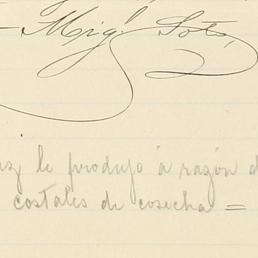 Migl Soto
le produjo á razón d
costales de cosecha =